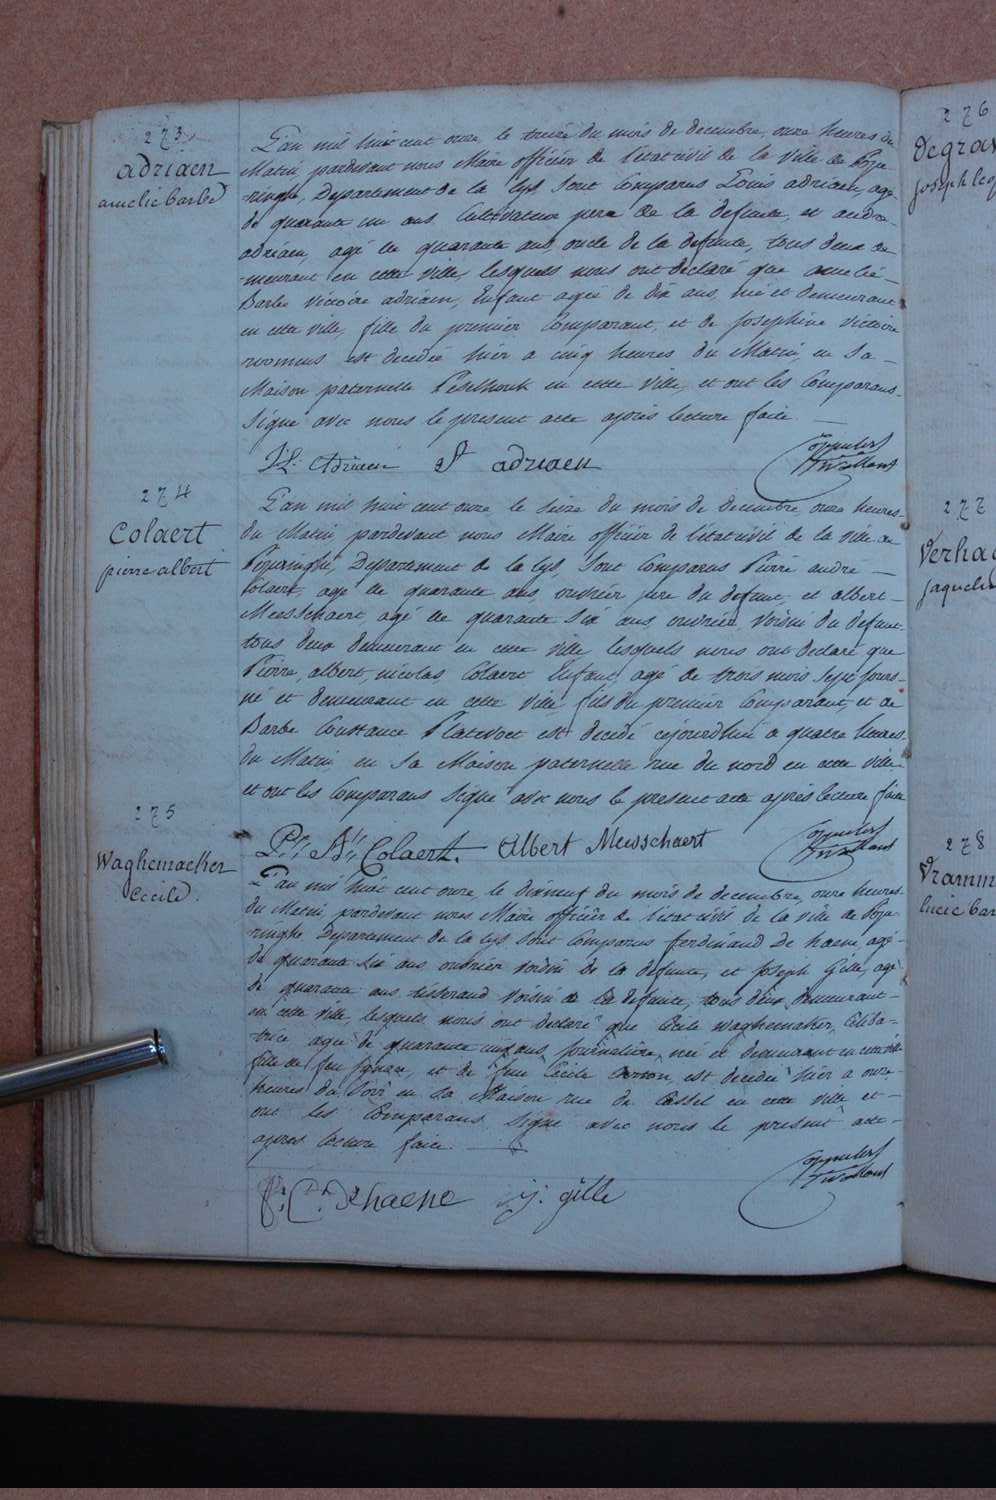 273
adriaen
amelie barbe
L'an mil huit cent onze le treize du mois de decembre, onze heures du
Matin, pardevant nous Maire officier de l'etat civil de la Ville de Pope
ringhe, Departement de la lys, sont Comparus Louis adriaen, agé
de quarante un ans Cultivateur pere de la defunte, et andre
adriaen, agé de quarante ans, oncle de la defunte, tous deux de
meurant en cette ville, lesquels nous ont declaré que amelie
Barbe Victoire adriaen, Enfant agée de dix ans, né et demeurant
en cette ville, fille du premier Comparant, et de Josephine Victoire
est decedée hier a cinq heures du Matin, en sa
Maison paternelle en cette ville, et ont les Comparans
Signé avec nous le present acte après lecture faite
adriaen
274
Colaert
pierre albert
L'an mil huit cent onze le seize du mois de decembre, onze heures
du Matin, pardevant nous Maire officier de l'etat civil de la ville de
Poperinghe, Departement de la lys, sont Comparus Pierre andre
Colaert, agé de quarante ans, ouvrier pere du defunt, et albert
Messchaert, agé de quarante six ans, ouvrier, Voisin du defunt,
tous deux demeurant en cette ville lesquels nous ont declaré que
Pierre, albert, nicolas Colaert Enfant, agé de trois mois sept jours
né et demeurant en cette ville, fils du premier Comparant, et de
Barbe Constance Platevoet est decedé cejourdhui a quatre heures
du Matin, en sa Maison paternelle rue du nord en cette ville
et ont les Comparans Signé avec nous le present acte après lecture faite
Colaert. Albert Messchaert
275
Waghemaeker
Cecile
L'an mil huit cent onze, le dixneuf du mois de decembre, onze heures
du Matin, pardevant nous Maire officier de l'etat civil de la ville de Pope
ringhe Departement de la lys sont Comparus ferdinand De haene, agé
de quarante six ans ouvrier voisin de la defunte, et Joseph Gille, agé
de quarante ans tisserand Voisin de la defunte, tous deux demeurant
en cette ville, lesquels nous ont declaré que Cecile Waghemaker, Celiba=
trice agée de quarante ans, journaliere, né et demeurant en cette ville
fille de feu Ignace, et de feue Cecile est decedée hier a onze
heures du Soir en sa Maison rue de Cassel en cette ville et
ont les Comparans Signé avec nous le present acte
après lecture faite.
Dehaene J: gille
276
Degrav
joseph
277
Verhae
jaqueli
278
Vramm
lucie bar